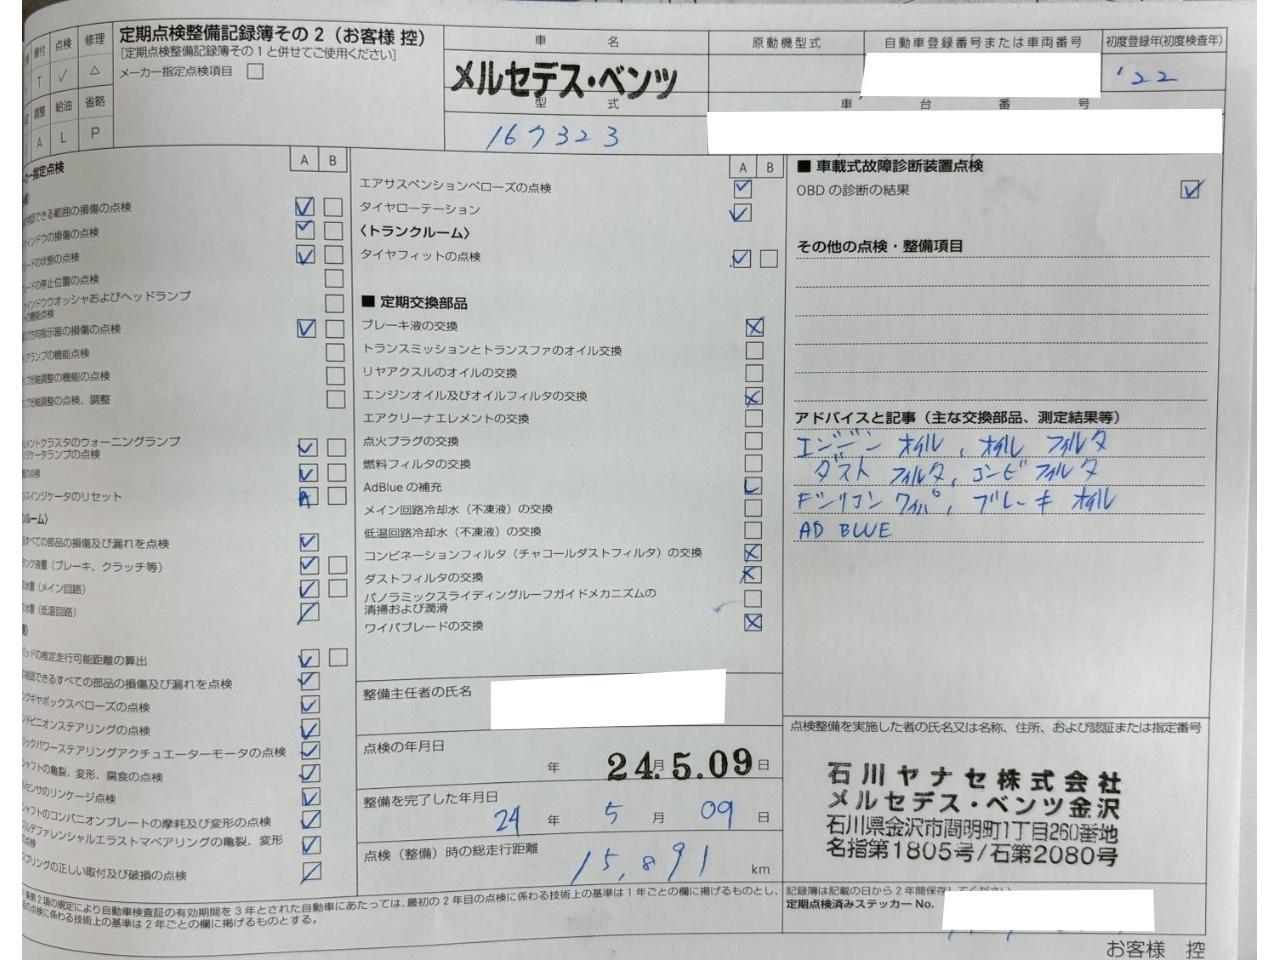 締付 点検 修理
T ✓ △
調整 給油 省略
A L P
定期点検整備記録簿その2(お客様 控)
[定期点検整備記録簿その1と併せてご使用ください]
メーカー指定点検項目
車 名
メルセデス・ベンツ
原動機型式
自動車登録番号または車両番号
初度登録年(初度検査年)
'22
型 式
167323
車 台 番 号
カー指定点検
A B
できる範囲の損傷の点検
インドウの損傷の点検
ードの状態の点検
ードの停止位置の点検
インドウウオッシャおよびヘッドランプ
の機能点検
方向指示器の損傷の点検
ランプの機能点検
光軸調整の機能の点検
光軸調整の点検、調整
メントクラスタのウォーニングランプ
ジケータランプの点検
の点検
スインジケータのリセット
ルーム〉
すべての部品の損傷及び漏れを点検
ンク液量(ブレーキ、クラッチ等)
水量(メイン回路)
水量(低温回路)
パッドの推定走行可能距離の算出
確認できるすべての部品の損傷及び漏れを点検
ングギヤボックスベローズの点検
ドピニオンステアリングの点検
ックパワーステアリングアクチュエーターモータの点検
シャフトの亀裂、変形、腐食の点検
ルセンサのリンケージ点検
シャフトのコンパニオンプレートの摩耗及び変形の点検
ルデファレンシャルエラストマベアリングの亀裂、変形
の点検
スプリングの正しい取付及び破損の点検
A B
エアサスペンションベローズの点検
タイヤローテーション
〈トランクルーム〉
タイヤフィットの点検
■ 定期交換部品
ブレーキ液の交換
トランスミッションとトランスファのオイル交換
リヤアクスルのオイルの交換
エンジンオイル及びオイルフィルタの交換
エアクリーナエレメントの交換
点火プラグの交換
燃料フィルタの交換
AdBlue の補充
メイン回路冷却水(不凍液)の交換
低温回路冷却水(不凍液)の交換
コンビネーションフィルタ(チャコールダストフィルタ)の交換
ダストフィルタの交換
パノラミックスライディングルーフガイドメカニズムの
清掃および潤滑
ワイパブレードの交換
整備主任者の氏名
点検の年月日
年 24.月5.09日
整備を完了した年月日
24 年 5 月 09 日
点検(整備)時の総走行距離
15,891 km
■ 車載式故障診断装置点検
OBD の診断の結果
その他の点検・整備項目
アドバイスと記事(主な交換部品、測定結果等)
エンジン オイル、オイル フィルタ
ダスト フィルタ、コンビ フィルタ
Fシリコン ワイパ、ブレーキ オイル
AD BLUE
点検整備を実施した者の氏名又は名称、住所、および認証または指定番号
石川ヤナセ株式会社
メルセデス・ベンツ金沢
石川県金沢市間明町1丁目260番地
名指第1805号/石第2080号
条第2項の規定により自動車検査証の有効期間を3年とされた自動車にあたっては、最初の2年目の点検に係わる技術上の基準は1年ごとの欄に掲げるものとし、
の点検に係わる技術上の基準は2年ごとの欄に掲げるものとする。
記録簿は記載の日から2年間保存してください
定期点検済みステッカー No.
お客様 控